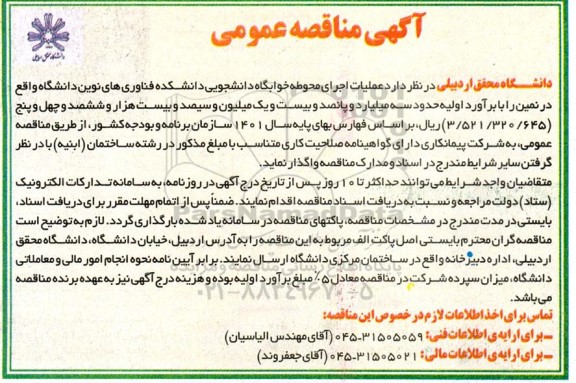 آگهی مناقصه عمومی
دانشگاه محقق اردبیلی
دانشگاه محقق اردبیلی در نظر دارد عملیات اجرای محوطه خوابگاه دانشجویی دانشکده فناوری های نوین دانشگاه واقع
در نمین را با برآورد اولیه حدود سه میلیارد و پانصد و بیست و یک میلیون و سیصد و بیست هزار و ششصد و چهل و پنج
(۳/۵۲۱/۳۲۰/۶۴۵) ریال، بر اساس فهارس بهای پایه سال ۱۴۰۱ سازمان برنامه و بودجه کشور، از طریق مناقصه
عمومی، به شرکت پیمانکاری دارای گواهینامه صلاحیت کاری متناسب با مبلغ مذکور در رشته ساختمان (ابنیه) با در نظر
گرفتن سایر شرایط مندرج در اسناد و مدارک مناقصه واگذار نماید.
متقاضیان واجد شرایط می توانند حداکثر تا ۱۰ روز پس از تاریخ درج آگهی در روزنامه، به سامانه تدارکات الکترونیک
(ستاد) دولت مراجعه و نسبت به دریافت اسناد مناقصه اقدام نمایند. ضمناً پس از اتمام مهلت مقرر برای دریافت اسناد،
بایستی در مدت مندرج در مشخصات مناقصه، پاکتهای مناقصه در سامانه یاد شده بارگذاری گردد. لازم به توضیح است
مناقصه گران محترم بایستی اصل پاکت الف مربوط به این مناقصه را به آدرس اردبیل، خیابان دانشگاه، دانشگاه محقق
اردبیلی، اداره دبیرخانه واقع در ساختمان مرکزی دانشگاه ارسال نمایند. برابر آیین نامه نحوه انجام امور مالی و معاملاتی
دانشگاه، میزان سپرده شرکت در مناقصه معادل ۵٪ مبلغ برآورد اولیه بوده و هزینه درج آگهی نیز به عهده برنده مناقصه
می باشد.
تماس برای اخذ اطلاعات لازم در خصوص این مناقصه:
– برای ارایه ی اطلاعات فنی: ۳۱۵۰۵۰۵۹-۰۴۵ (آقای مهندس الیاسیان)
– برای ارایه ی اطلاعات مالی: ۳۱۵۰۵۰۲۱-۰۴۵ (آقای جعفروند)
ParsNamadData
پایگاه اطلاع رسانی مناقصه و مزایده
۰۲۱-۸۸۳۴۹۶۷۰-۵